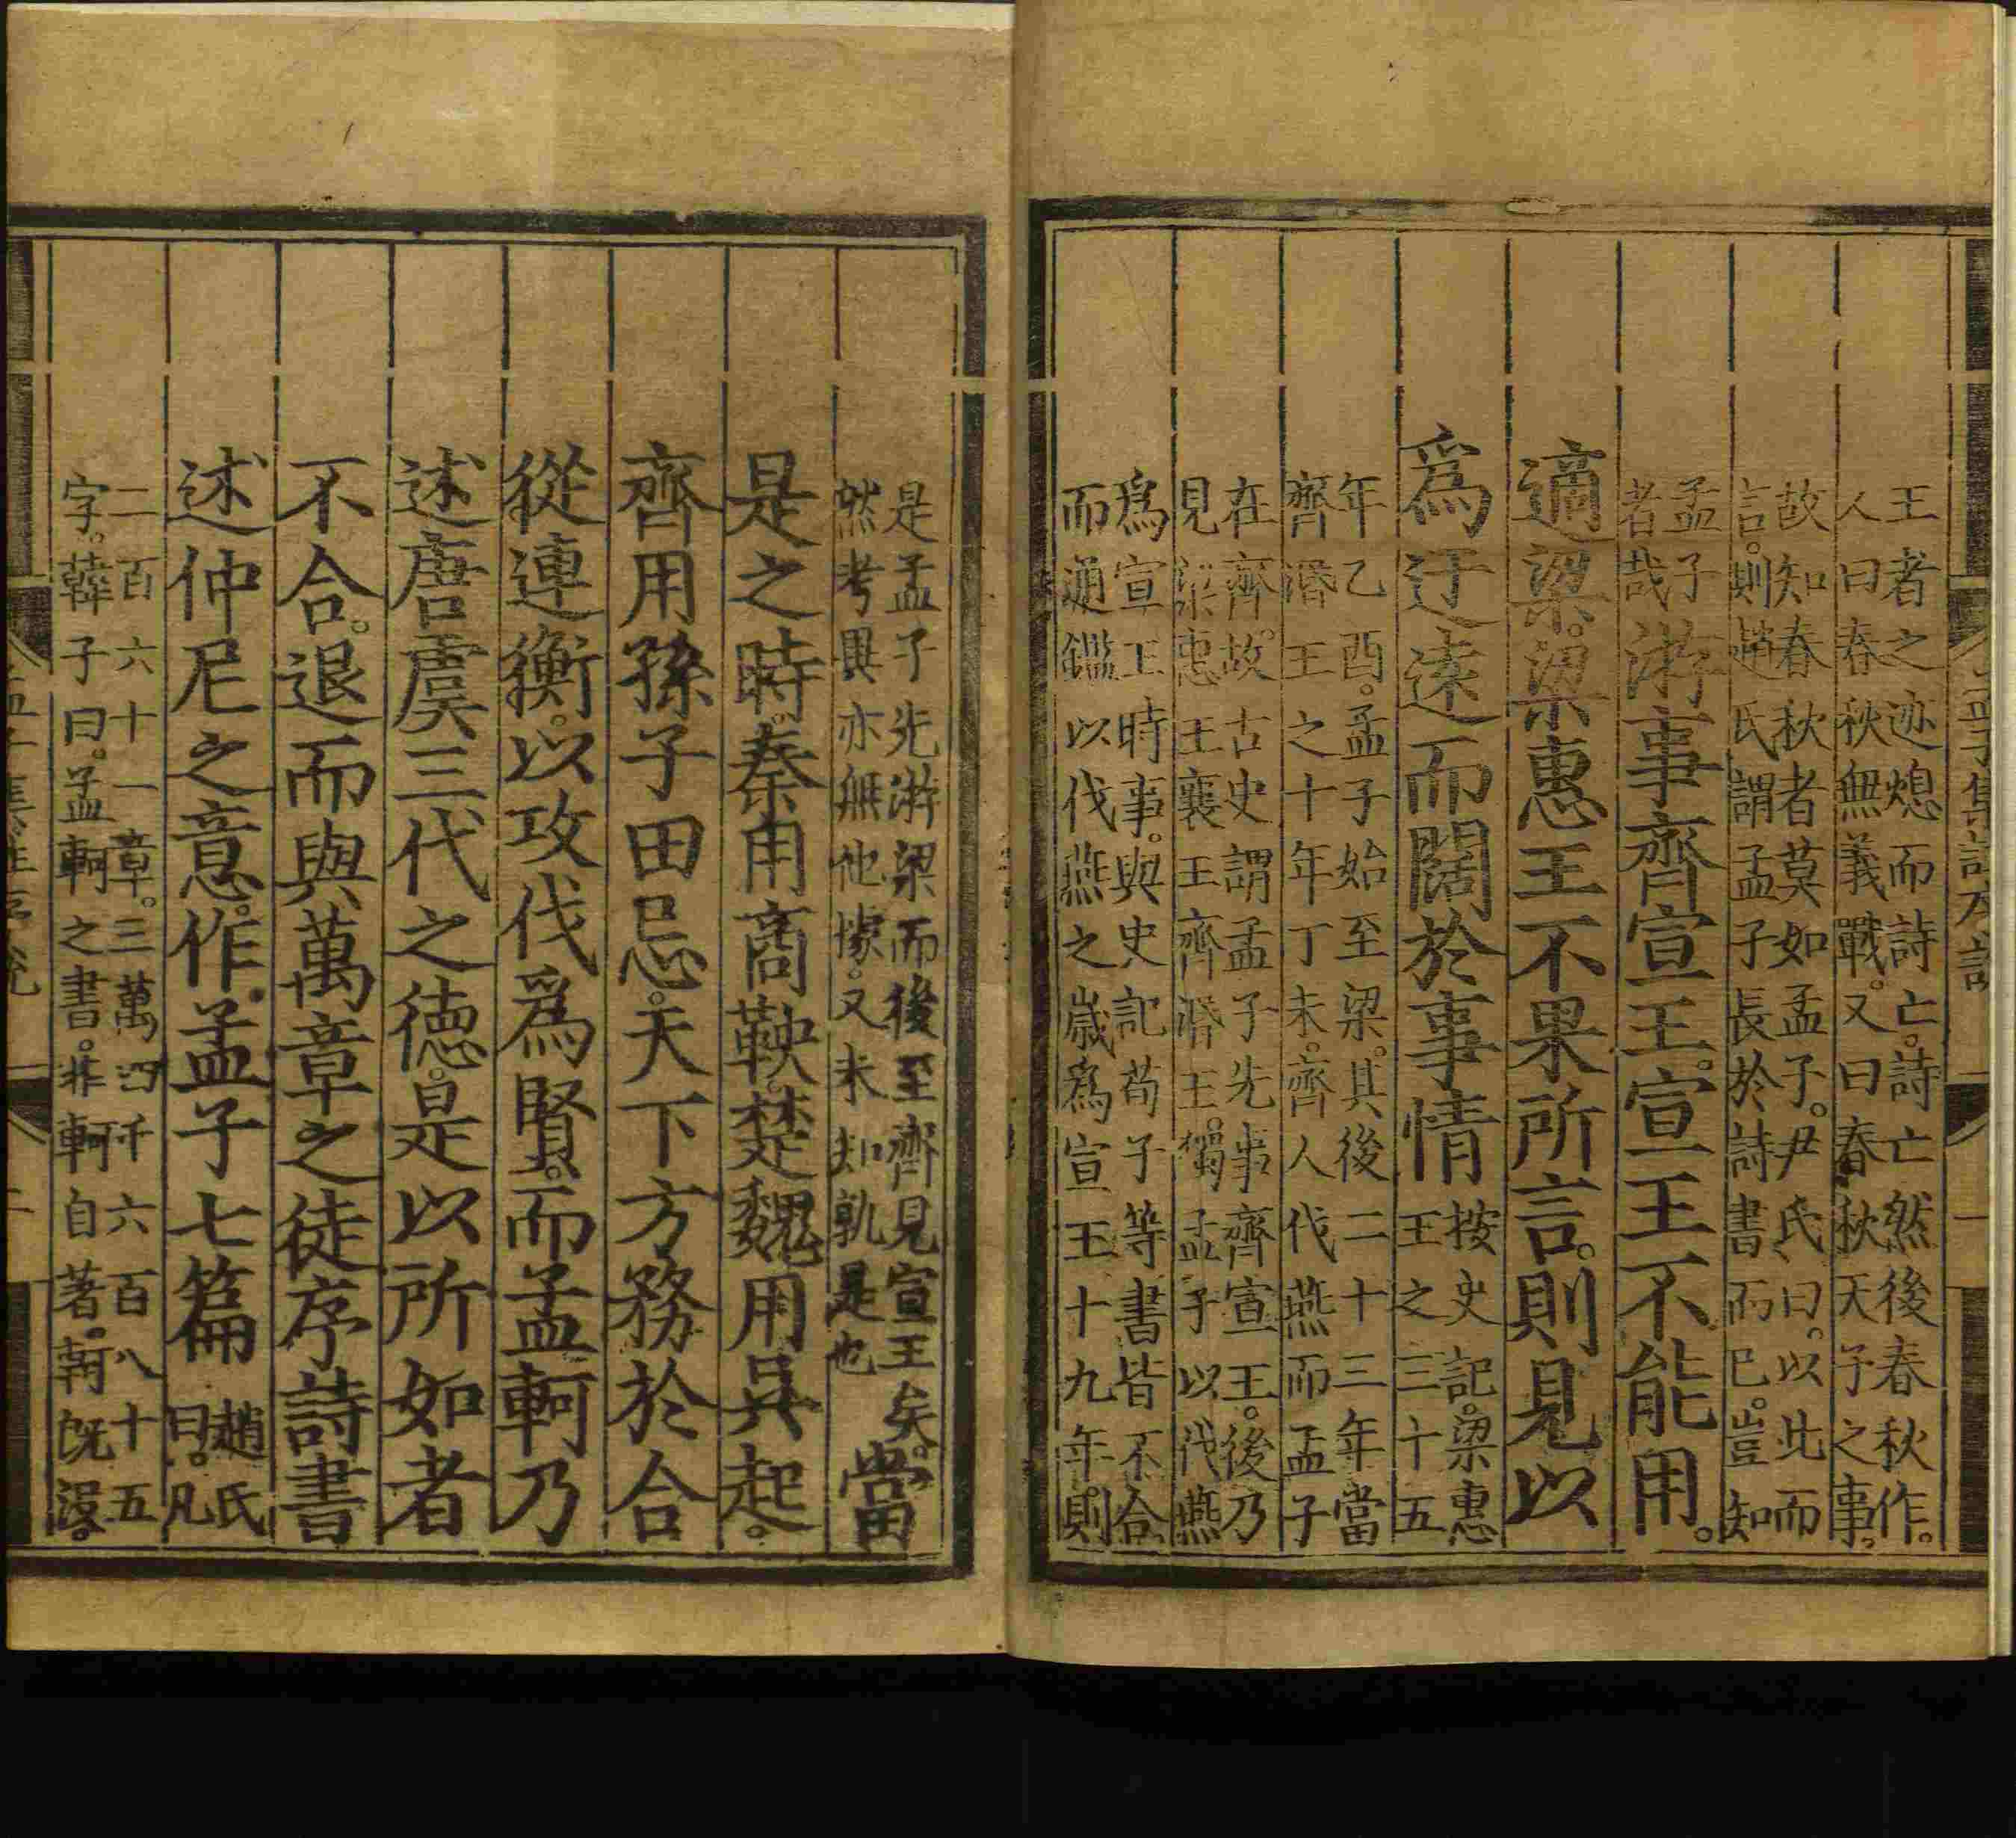 王者之迹熄而詩亡。詩亡然後春秋作。
人曰春秋無義戰。又曰春秋天子之事。
故知春秋者莫如孟子。尹氏曰。以此而
言。則趙氏謂孟子長於詩書而已。豈知
孟子
者哉
游事齊宣王。宣王不能用。
適梁。梁惠王不果所言。則見以
爲迂遠而闊於事情
按史記。梁惠
王之三十五
年乙酉。孟子始至梁。其後二十三年當
齊湣王之十年丁未。齊人伐燕而孟子
在齊。故古史謂孟子先事齊宣王。後乃
見梁惠王襄王齊湣王。獨孟子以伐燕
爲宣王時事。與史記荀子等書皆不合。
而通鑑以伐燕之歲爲宣王十九年。則
是孟子先游梁而後至齊見宣王矣。
然考異亦無他據。又未知孰是也
當
是之時。秦用商鞅。楚魏用吳起。
齊用孫子田忌。天下方務於合
從連衡。以攻伐爲賢。而孟軻乃
述唐虞三代之德。是以所如者
不合。退而與萬章之徒序詩書
述仲尼之意。作孟子七篇
趙氏
曰。凡
二百六十一章。三萬四千六百八十五
字。韓子曰。孟軻之書。非軻自著。軻既沒。